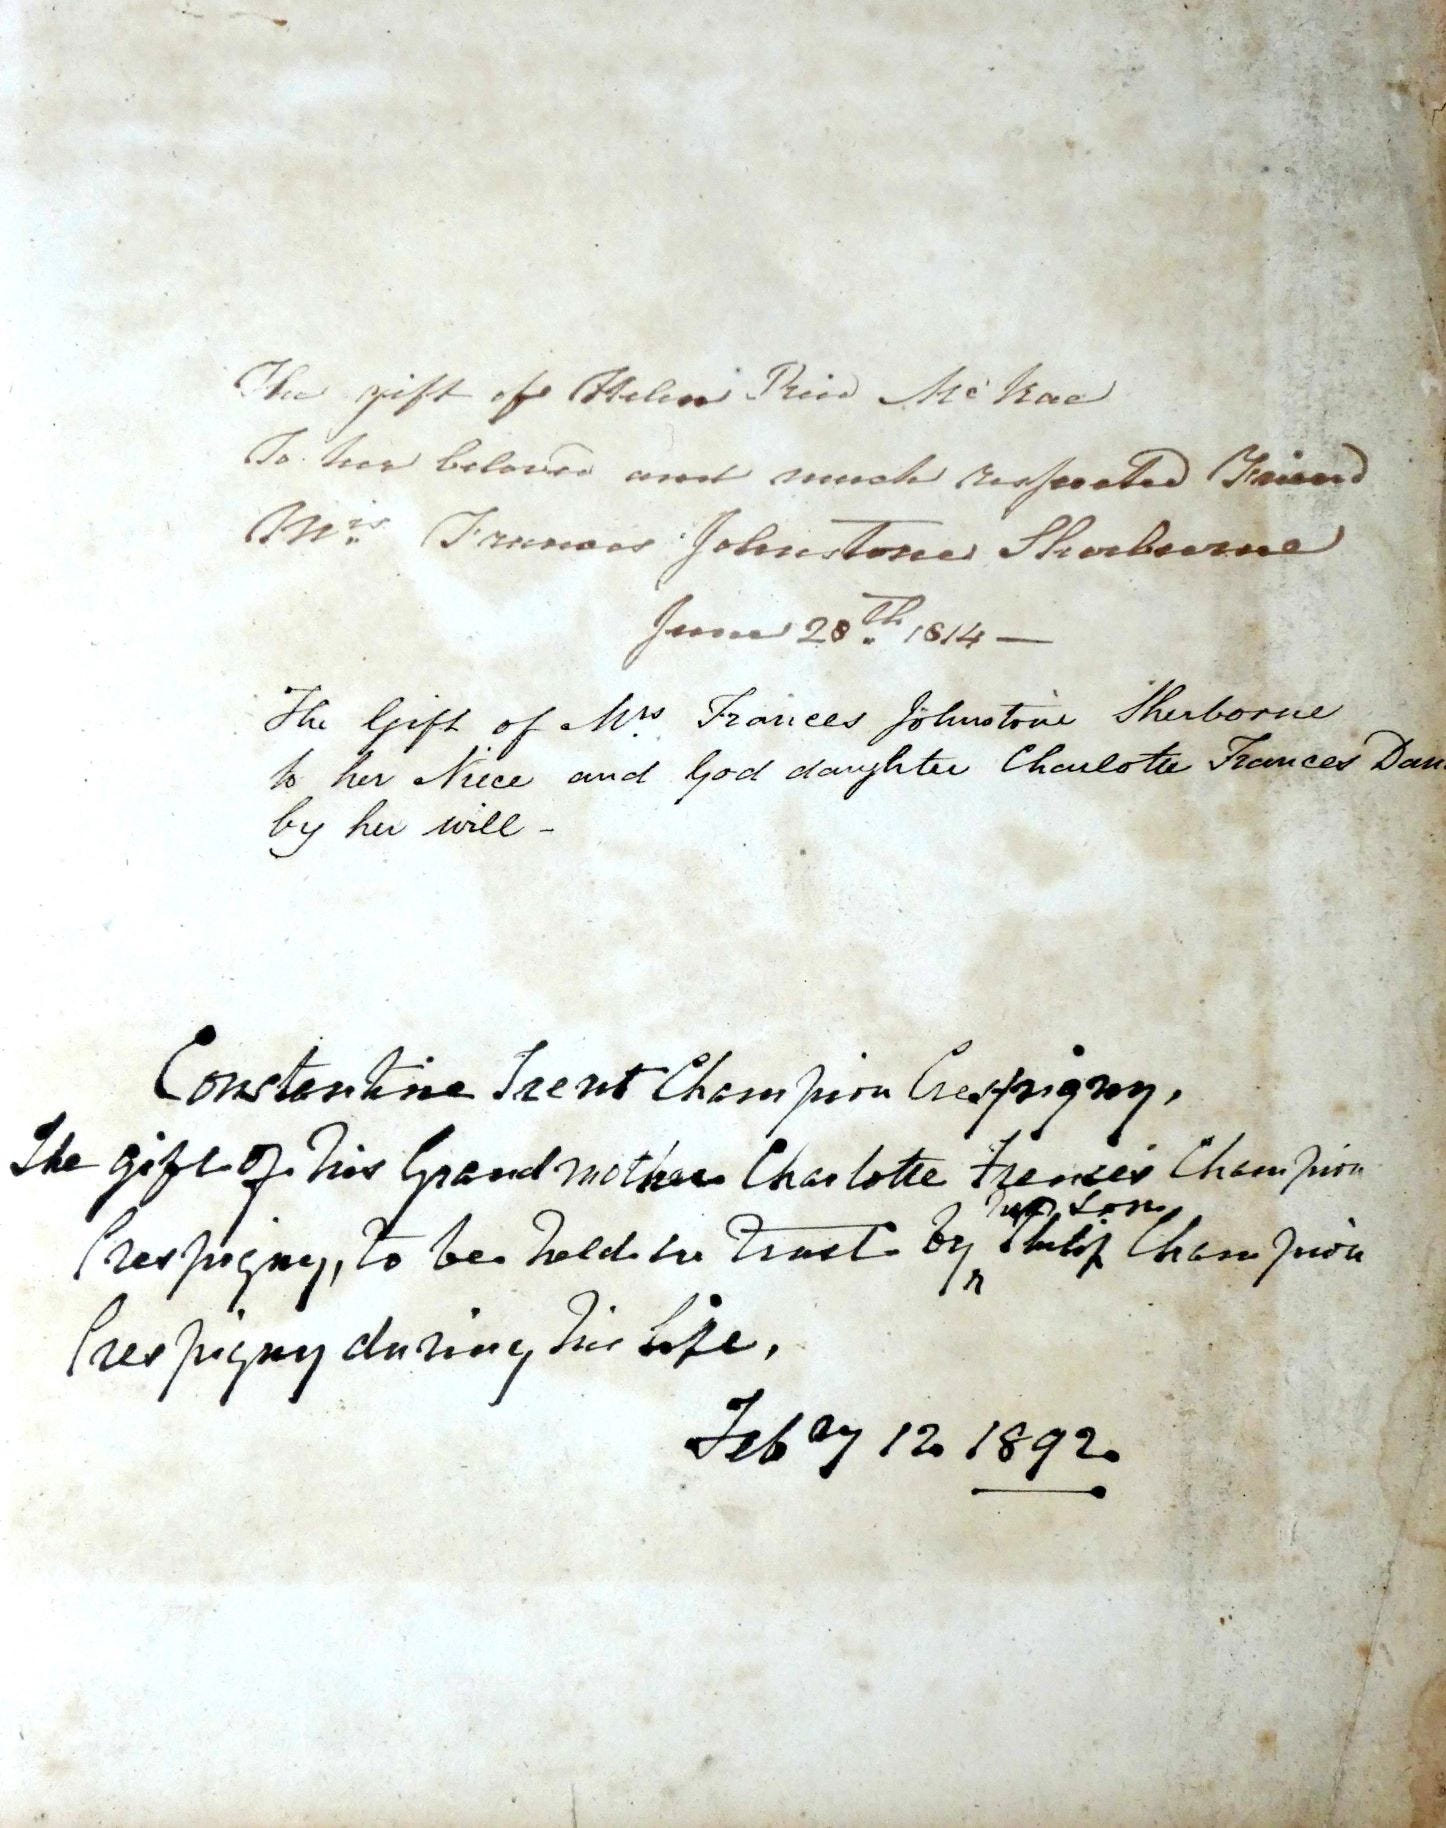 The gift of Helen Reid McRae
To her beloved and much respected Friend
Mrs. Frances Johnstone Sherborne
June 28th. 1814 —
The Gift of Mrs. Frances Johnstone Sherborne
to her Niece and God daughter Charlotte Frances Dan
by her will -
Constantine Trent Champion Crespigny,
The gift of his Grandmother Charlotte Frances Champion
her son
Crespigny, to be held in trust by Philip Champion
Crespigny during his life,
Febry 12 1892.